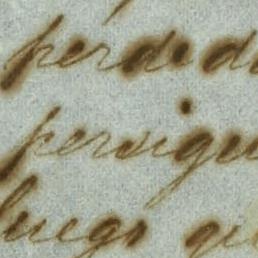 perdedo
persigue
luego que